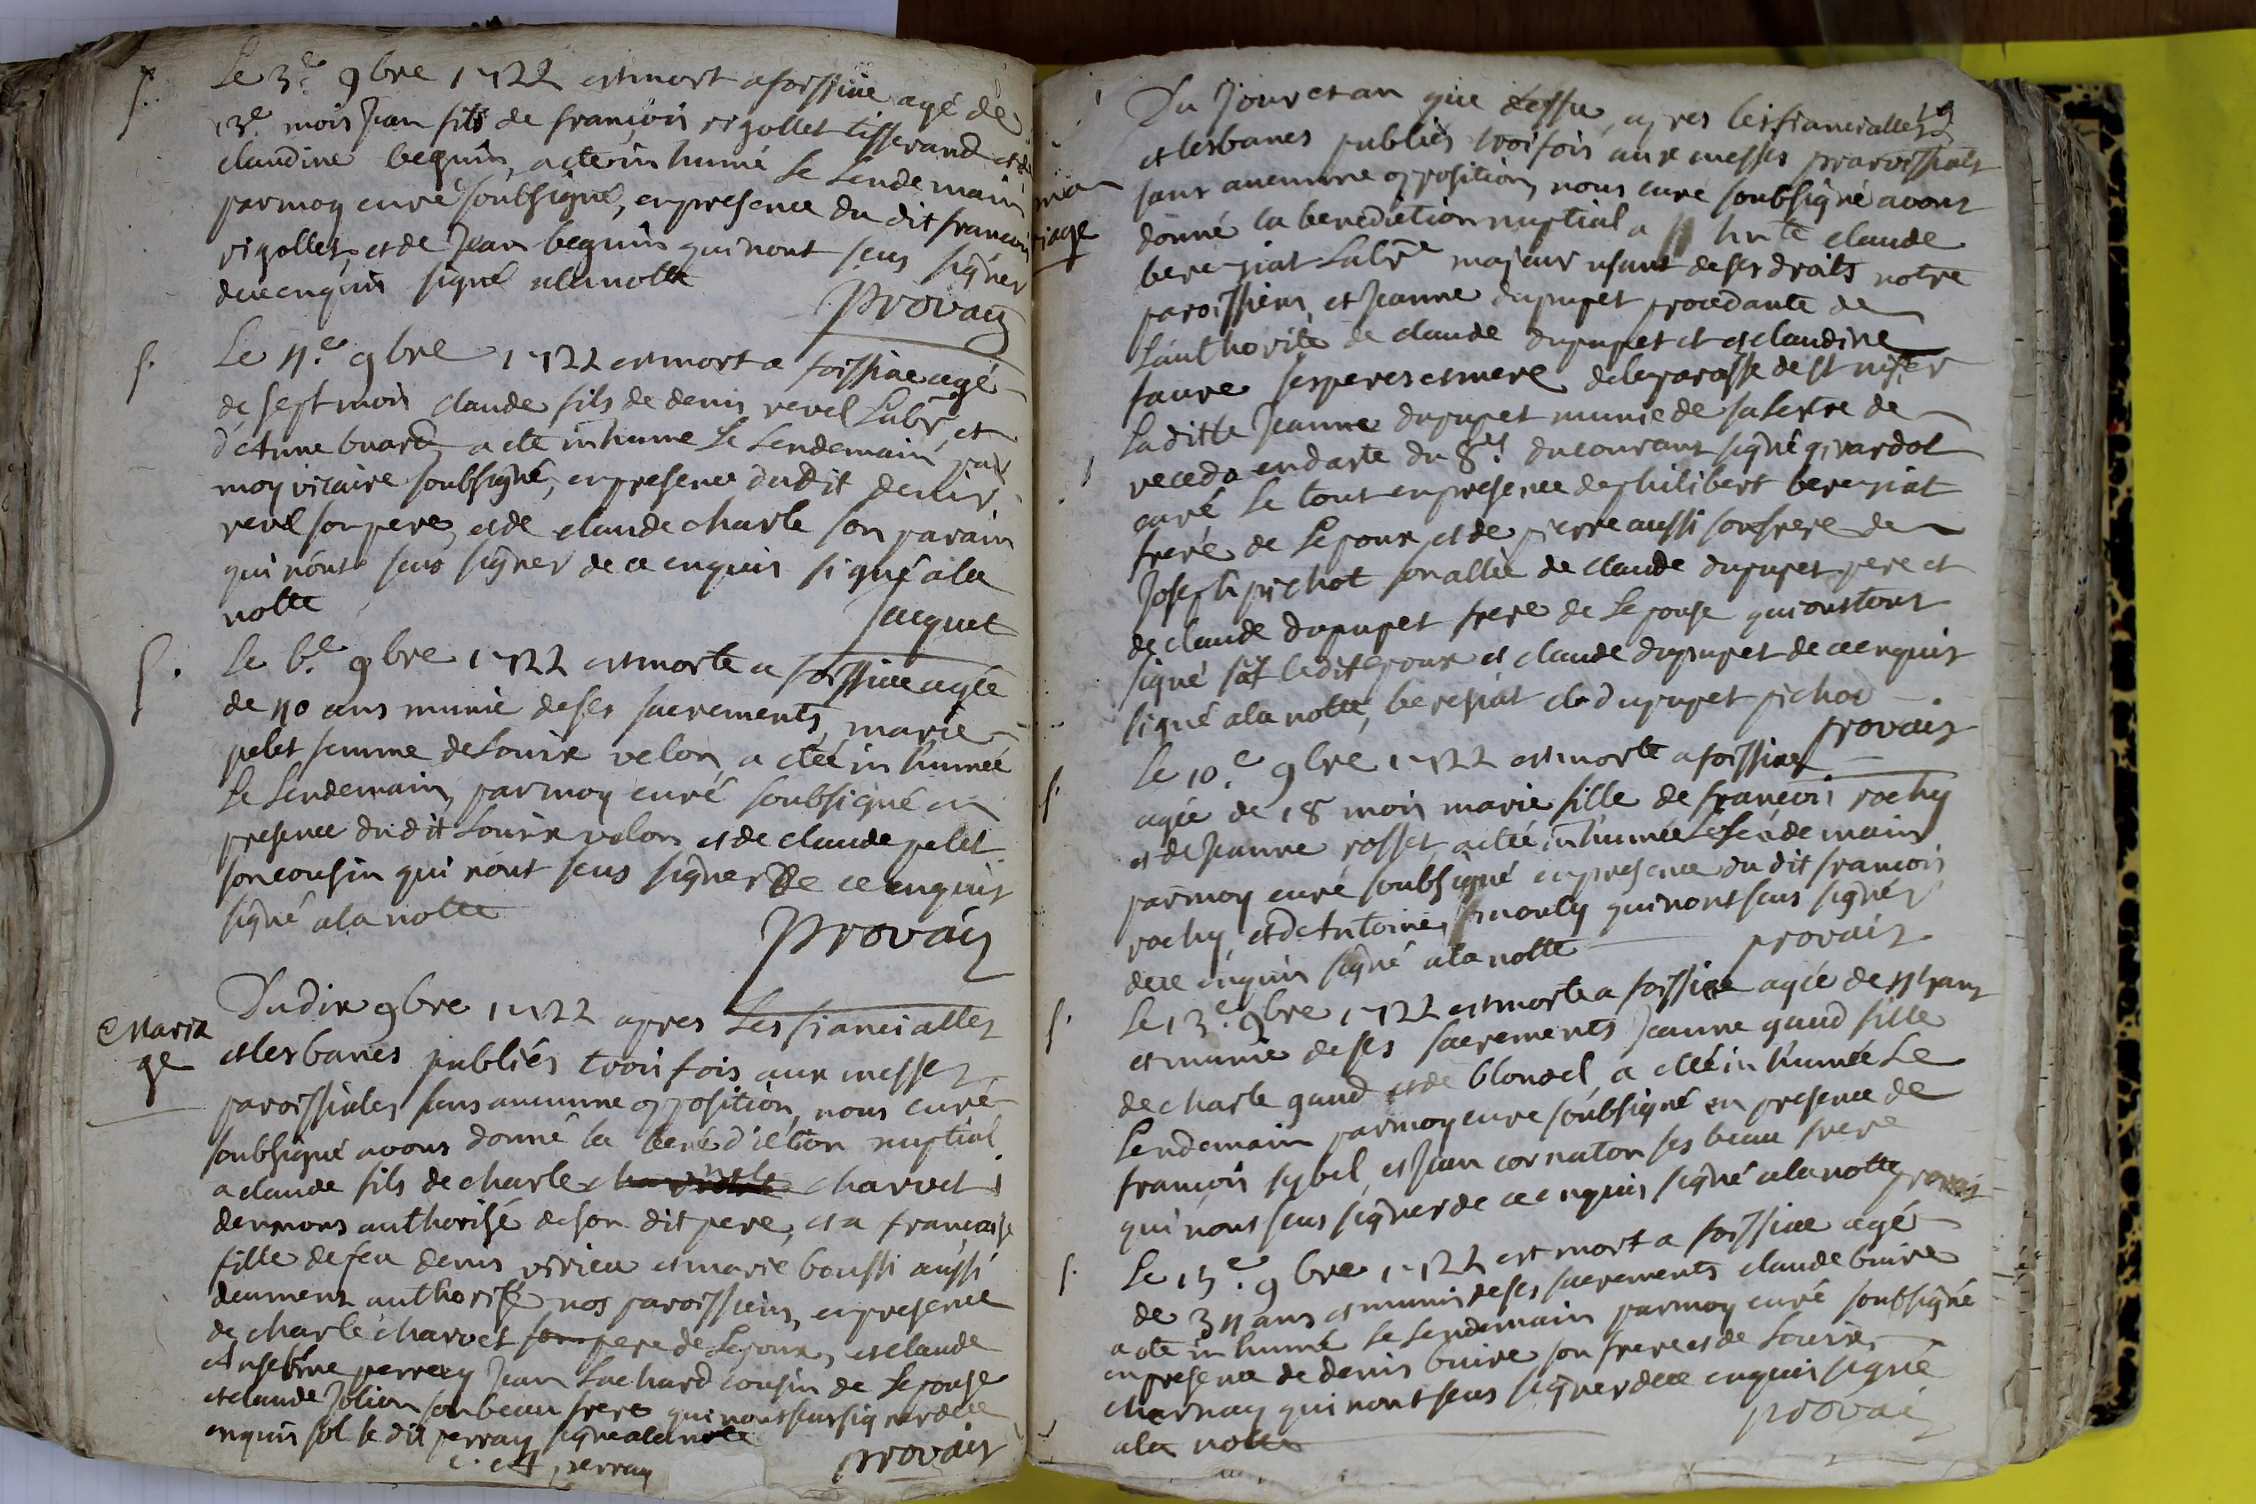 S.
Le 3e. 9bre 1722 est mort a foissiae agé de
13e mois Jean fils de françois rigollet tisserand et de
claudine beguin, a eté inhumé le Lendemain
par moy curé soubsigné, en presence du dit francois
rigollet, et de Jean beguin qui n'ont seus signer
de ce enquis signé a la notte
Provain
S.
Le 4.e 9bre 1722 est mort a foissiae agé
de sept mois claude fils de denis revel Labr. et
d'Anne buard, a eté inhumé Le Lendemain par
moy vicaire soubsigné, en presence du dit denis
revel son pere, et de claude charle son parain
qui n'ont seus signer de ce enquis signé a la
notte
Jacquet
S.
Le 6.e 9bre 1722 est morte a foissiae agée
de 40 ans munie de ses sacrements, marie
pelet femme de Louis velon, a etée in humée
Le Lendemain, par moy curé soubsigné en
presence du dit Louis velon et de claude pelet
son cousin qui n'ont seus signer de ce enquis
signé a la notte
Provain
Maria
ge
Du dix 9bre 1722 apres Les fiancialles
et les bancs publiés trois fois aux messes
paroissiales sans aucunne opposition, nous curé
soubsigné avons donné la benediction nuptial
a claude fils de charle charvet
deumons authorisé de son dit pere, et a francoise
fille de feu denis virieu et marie boussi aussi
deument authorisé nos paroissiens, en presence
de charle charvet son pere de Lepoux, et claude
Anselme perrey Jean Lachard cousin de Lepouse
et claude Jolion son beau frere qui n'ont seus signer de ce
enquis sol le dit perray signé a la notte
c. A perray
provain
Du Jour et an que dessu, apres les fiancialles
et les bancs publiés troi fois aux messes praroissials
ma
riage
sans aucunne opposition, nous curé soubsigné avons
donné la benediction nuptial a hnte claude
bereyiat Labr majeur usant de ses droits notre
paroissien, et Jeanne dupupet procedante de
L'authorité de claude dupupet et et claudine
faure ses peres et mere de la parosse de St nisier
La ditte Jeanne dupupet munie de sa Lettre de
recedo en datte du 8e du courant signé girardot
curé Le tout en presence de philibert bereyiat
frere de Lepoux, et de pierre aussi son frere de
Joseph pichot son allié de claude dupupet pere et
de claude dupupet frere de Lepouse qui ons tous
signé sot ledit epoux et claude dupupet de ce enquis
signé a la notte, bereyiat cl dupupet pichod
provain
S.
Le 10.e 9bre 1722 est morte a foissiae
agée de 18 mois marie fille de francois rochy
et de Jeanne rosset, a etée in humée Le Lendemain
par moy curé soubsigné en presence du dit francois
rochy, et de Antoine monty qui n'ont seus signer
de ce enquis signé a la notte
provain
S.
Le 13.e 9bre 1722 est morte a foissiae agée de ans
et munie de ses sacrements Jeanne gaud fille
de charle gaud et de blondel, a etée in humée Le
Lendemain par moy curé soubsigné en presence de
francois sybel, et Jean cornaton ses beau frere
qui n'ont seus signer de ce enquis signé a la notte provain
S.
Le 15.e 9bre 1722 est mort a foissiae agé
de 34 ans et munis de ses sacrements claude buire
a eté in humé Le Lendemain par moy curé soubsigné
en presence de denis buire son frere et de Louis
charnay qui n'ont seus signer de ce enquis signé
a la notte
provain